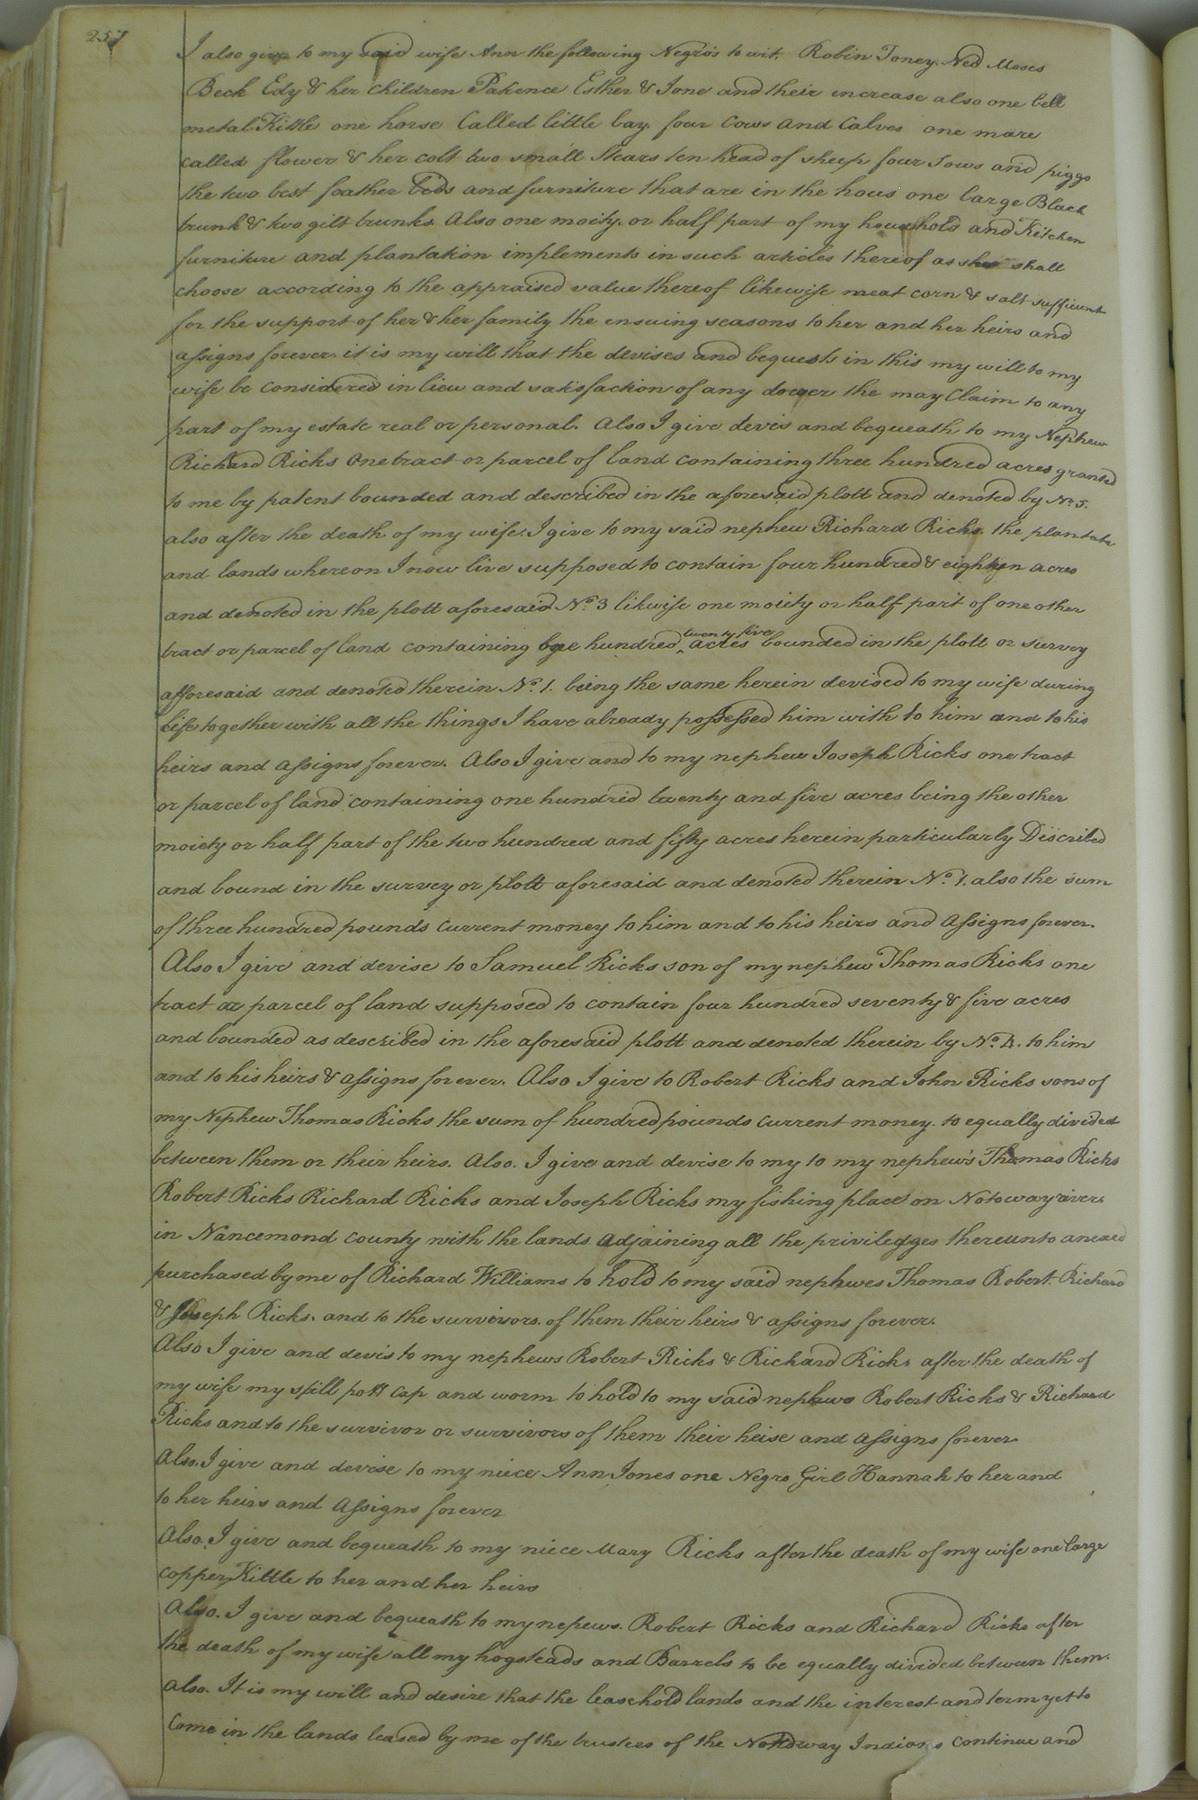 257
I also give to my said wife Ann the following Negros to wit. Robin Toney. Ned Moses
Beck Edy & her children Patience Esther & Jone and their increase also one bell
metal Kittle one horse Called little bay four Cows and Calves one mare
called flower & her colt two small Stears ten head of sheep four Sows and piggs
the two best feather beds and furniture that are in the hous one large Black
trunk & two gilt trunks. Also one moity or half part of my household and Kitchen
furniture and plantation implements in such articles thereof as she shall
choose according to the appraised value thereof likewise meat corn & salt sufficient
for the support of her & her family the ensuing seasons to her and her heirs and
assigns forever. it is my will that the devises and bequests in this my will to my
wife be considered in lieu and satisfaction of any dower the may Claim to any
part of my estate real or personal. Also I give devis and bequeath to my Nephew
Richard Ricks One tract or parcel of land containing three hundred acres granted
to me by patent bounded and described in the aforesaid plott and denoted by No. 5.
also after the death of my wife. I give to my said nephew Richard Ricks. the
and lands whereon I now live supposed to contain four hundred & eighteen acres
and denoted in the plott aforesaid No. 3 likwise one moiety or half part of one other
tract or parcel of land containing hundred twenty five acres bounded in the plott or survey
afforesaid and denoted therein No. 1. being the same herein devised to my wife during
Life together with all the things I have already possessed him with to him and to his
heirs and assigns forever. Also I give and to my nephew Joseph Ricks one tract
or parcel of land containing one hundred twenty and five acres being the other
moiety or half part of the two hundred and fifty acres herein particularly Discribed
and bound in the survey or plott aforesaid and denoted therein No. 1. also the sum
of three hundred pounds current money to him and to his heirs and assigns forever.
Also I give and devise to Samuel Ricks son of my nephew Thomas Ricks one
tract or parcel of land supposed to contain four hundred seventy & five acres
and bounded as described in the aforesaid plott and denoted therein by No. 4. to him
and to his heirs & assigns forever. Also I give to Robert Ricks and John Ricks sons of
my Nephew Thomas Ricks the sum of hundred pounds current money. to equally divided
between them or their heirs. Also. I give and devise to my to my nephew's Thomas Ricks
Robert Ricks Richard Ricks and Joseph Ricks my fishing place on Notoway river
in Nancemond County with the lands adjaining all the priviledges thereunto anexed
purchased by me of Richard Williams to hold to my said nephwes Thomas Robert. Richard
& Joseph Ricks. and to the survivors. of them their heirs & assigns forever.
Also I give and devis to my nephews Robert Ricks & Richard Ricks after the death of
my wife my still pott cap and worm to hold to my said nephews Robert Ricks & Richard
Ricks and to the survivor or survivors of them their heise and assigns forever
Also. I give and devise to my niece Ann Jones one Negro Girl Hannah to her and
to her heirs and assigns forever
Also. I give and bequeath to my niece Mary Ricks after the death of my wife one large
copper Kittle to her and her heirs
Also. I give and bequeath to my nepews. Robert Ricks and Richard Ricks after
the death of my wife all my hogsteads and Barrels to be equally divided between them.
Also. It is my will and desire that the leasehold lands and the interest and term yet to
Come in the lands leased by me of the trustees of the Nottoway Indians continue and